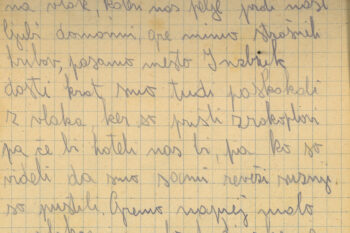 na vlak, kateri nas pelje proti naši
ljubi domovini, gremo mimo strašnih
hribov, pasamo mesto Insbruk
dosti krat smo tudi poskakali
z vlaka ker so prišli zrakoplovi
pa če bi hoteli nas bi, pa ko so
videli da smo sami reveži sužnji.
so pustili. Gremo naprej malo